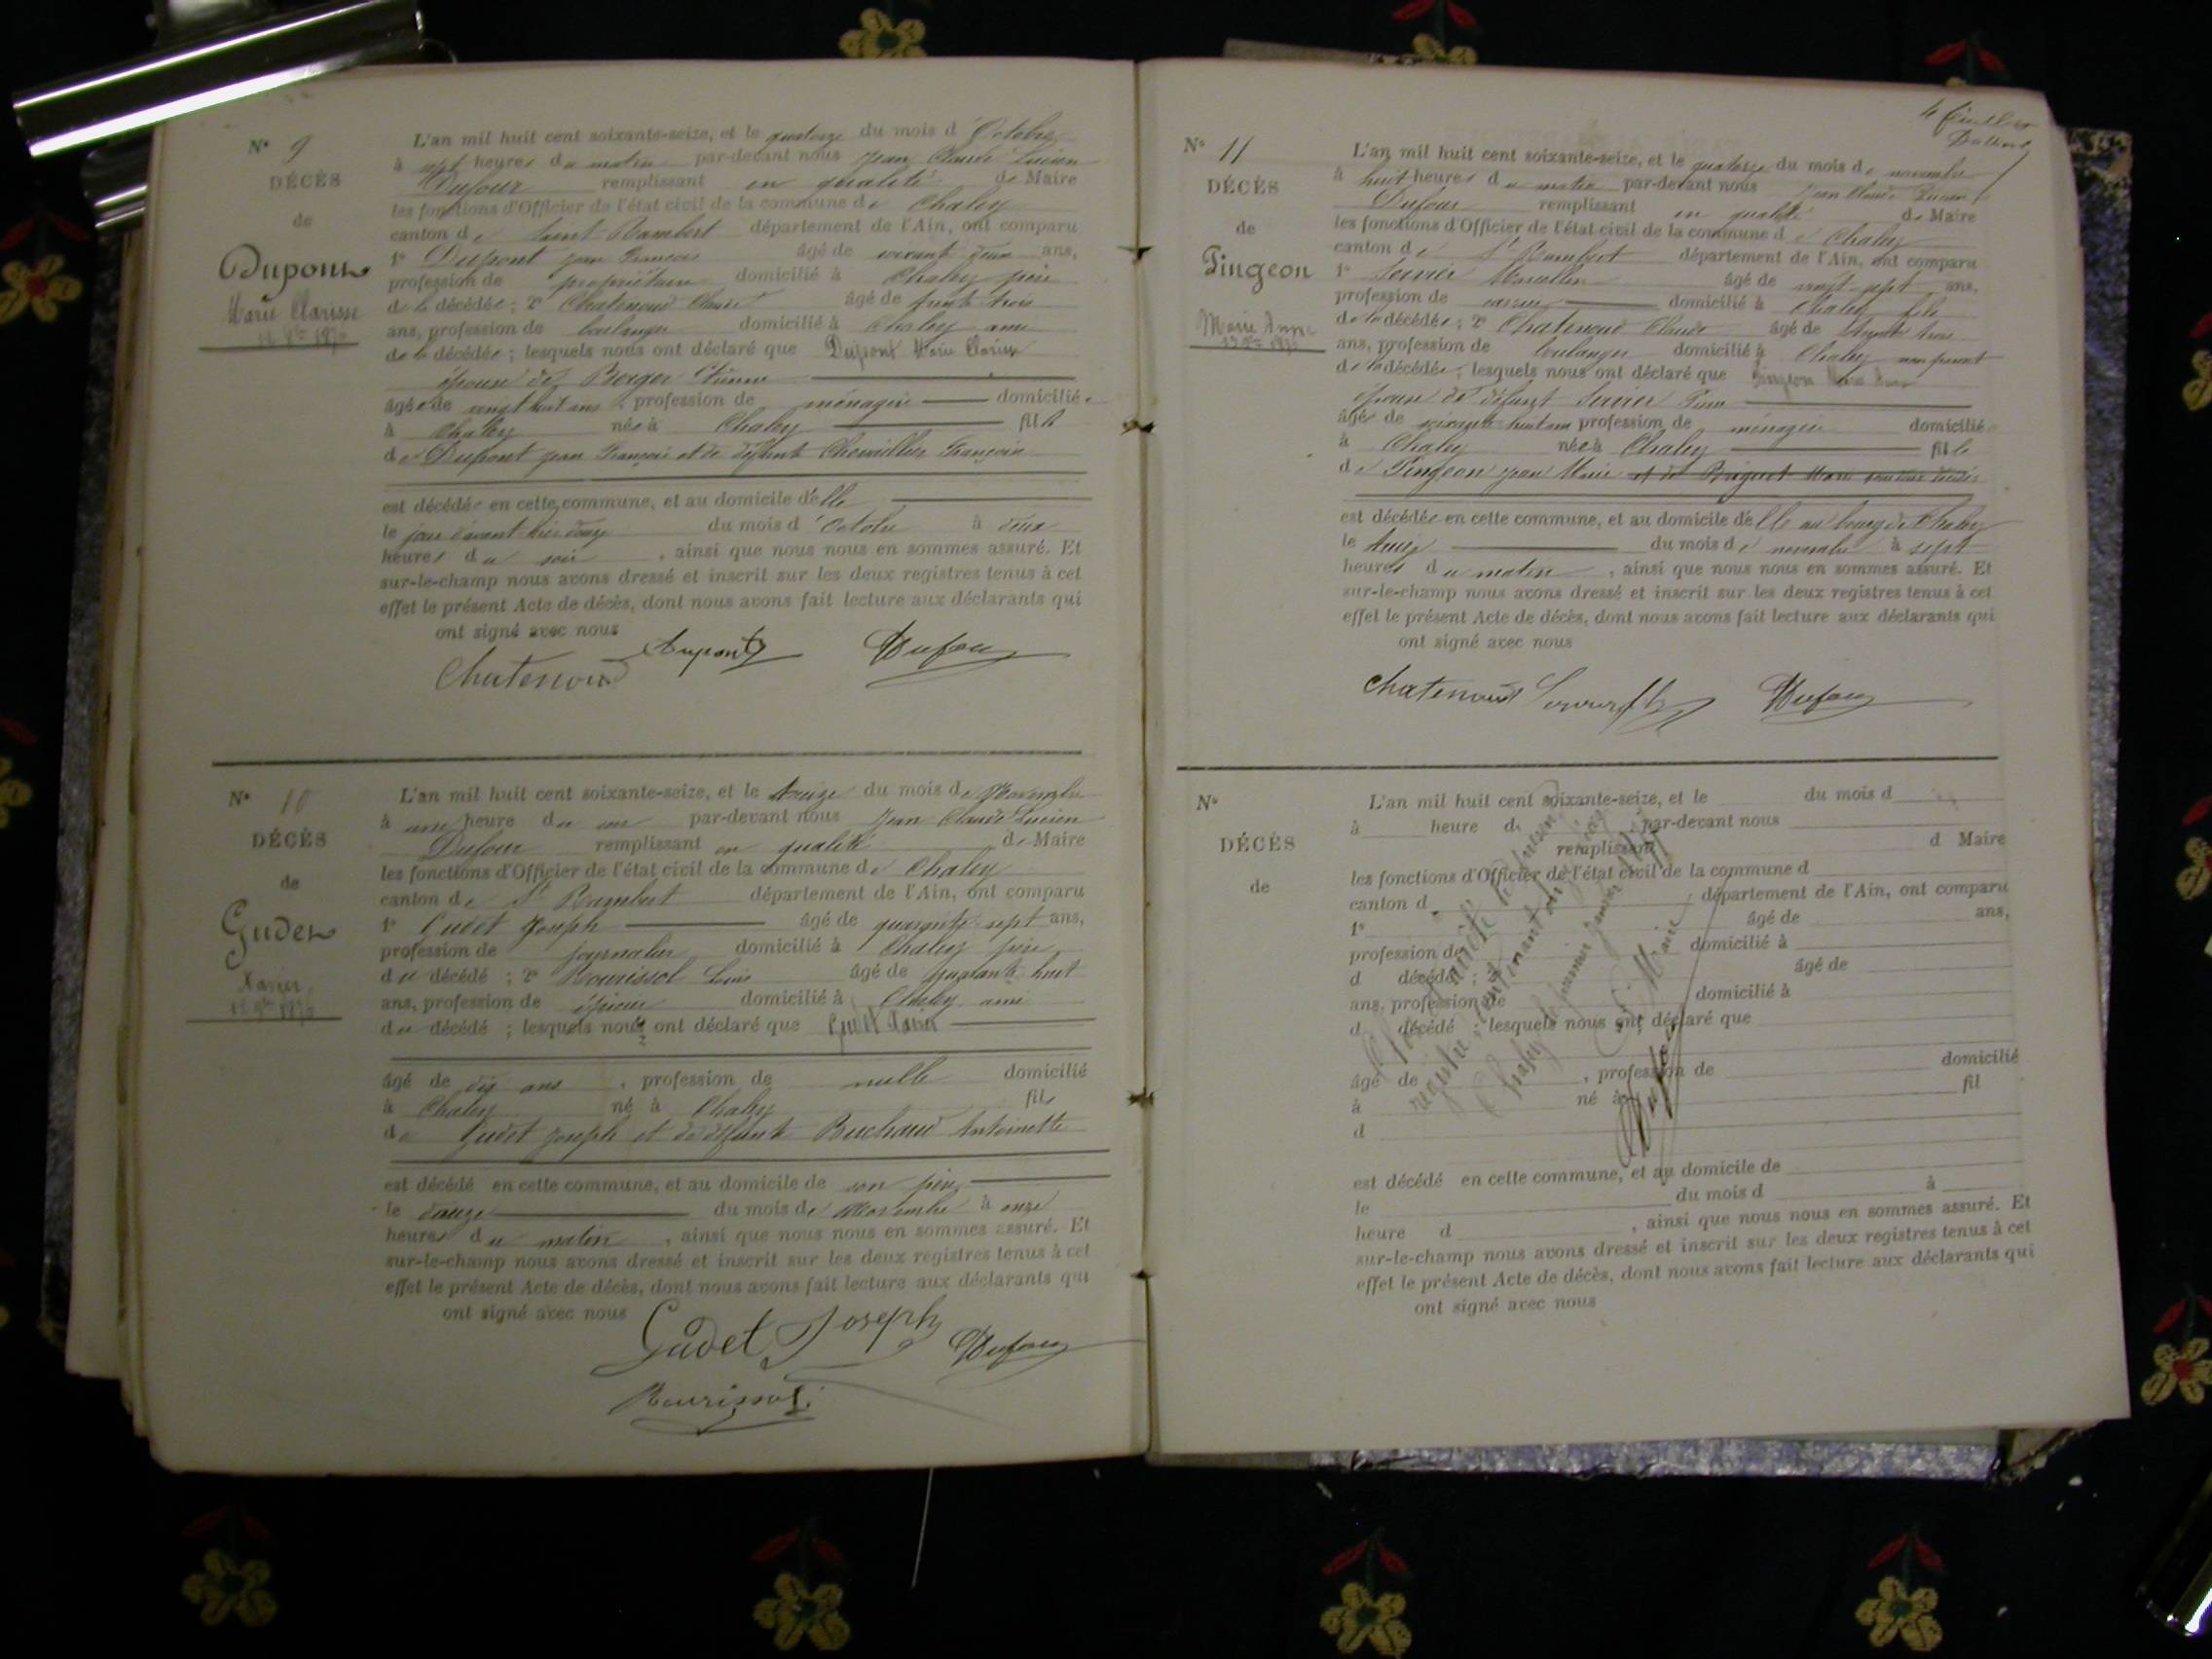 N° 9
DÉCÈS
de
Dupont
Marie Clarisse
L'an mil huit cent soixante-seize, et le quatorze du mois d'Octobre
à sept heures du matin par-devant nous Jean Claude Lucien
Dufour remplissant en qualité de Maire
les fonctions d'Officier de l'état civil de la commune de Chaley
canton de Saint Rambert département de l'Ain, ont comparu
1° Dupont jean François âgé de ans,
profession de propriétaire domicilié à Chaley père
de la décédée ; 2° Chatenoud Claude âgé de trente trois
ans, profession de boulanger domicilié à Chaley ami
de la décédée ; lesquels nous ont déclaré que Dupont Marie Clarisse
épouse de Berger Etienne
âgée de vingt huit ans, profession de ménagère domiciliée
à Chaley née à Chaley fille
de Dupont jean François et de défunte Françoise
est décédée en cette commune, et au domicile d'elle
le jour d'avant hier douze du mois d'Octobre à deux
heures du soir, ainsi que nous nous en sommes assuré. Et
sur-le-champ nous avons dressé et inscrit sur les deux registres tenus à cet
effet le présent Acte de décès, dont nous avons fait lecture aux déclarants qui
ont signé avec nous
Chatenoud Dupont Dufour
N° 10
DÉCÈS
de
Gudet
Xavier
L'an mil huit cent soixante-seize, et le treize du mois de Novembre
à une heure du soir par-devant nous Jean Claude Lucien
Dufour remplissant en qualité de Maire
les fonctions d'Officier de l'état civil de la commune de Chaley
canton de St Rambert département de l'Ain, ont comparu
1° Gudet Joseph âgé de quarante-sept ans,
profession de journalier domicilié à Chaley père
du décédé ; 2° Bourissol Louis âgé de quarante huit
ans, profession de épicier domicilié à Chaley ami
du décédé ; lesquels nous ont déclaré que Gudet Xavier
âgé de dix ans, profession de nulle domicilié
à Chaley né à Chaley fils
de Gudet Joseph et de défunte Buchaud Antoinette
est décédé en cette commune, et au domicile de son père
le douze du mois de Novembre à onze
heures du matin, ainsi que nous nous en sommes assuré. Et
sur-le-champ nous avons dressé et inscrit sur les deux registres tenus à cet
effet le présent Acte de décès, dont nous avons fait lecture aux déclarants qui
ont signé avec nous
Gudet Joseph Dufour
Bourissol
N° 11
DÉCÈS
de
Pingeon
Marie Anne
L'an mil huit cent soixante-seize, et le quatorze du mois de novembre
à huit heures du matin par-devant nous Jean Claude Lucien
Dufour remplissant en qualité de Maire
les fonctions d'Officier de l'état civil de la commune de Chaley
canton de St Rambert département de l'Ain, ont comparu
1° Marcellin âgé de vingt-sept ans,
profession de domicilié à Chaley fils
de la décédée ; 2° Chatenoud Claude âgé de trente trois
ans, profession de boulanger domicilié à Chaley non parent
de la décédée ; lesquels nous ont déclaré que Pingeon Marie Anne
épouse de défunt
âgée de soixante huit ans profession de ménagère domiciliée
à Chaley née à Chaley fille
de Pingeon jean Marie et de Marie
est décédée en cette commune, et au domicile d'elle au bourg de Chaley
le treize du mois de novembre à sept
heures du matin, ainsi que nous nous en sommes assuré. Et
sur-le-champ nous avons dressé et inscrit sur les deux registres tenus à cet
effet le présent Acte de décès, dont nous avons fait lecture aux déclarants qui
ont signé avec nous
Chatenoud Dufour
N°
DÉCÈS
de
L'an mil huit cent soixante-seize, et le du mois d
à heure d par-devant nous
remplissant d Maire
les fonctions d'Officier de l'état civil de la commune d
canton d département de l'Ain, ont comparu
1° âgé de ans,
profession de domicilié à
d décédé ; 2° âgé de
ans, profession de domicilié à
d décédé ; lesquels nous ont déclaré que
âgé de , profession de domicilié
à né à fil
d
est décédé en cette commune, et au domicile de
le du mois d à
heure d , ainsi que nous nous en sommes assuré. Et
sur-le-champ nous avons dressé et inscrit sur les deux registres tenus à cet
effet le présent Acte de décès, dont nous avons fait lecture aux déclarants qui
ont signé avec nous
Clos et arrêté le présent
registre contenant onze
Chaley le premier janvier
Le Maire
Dufour